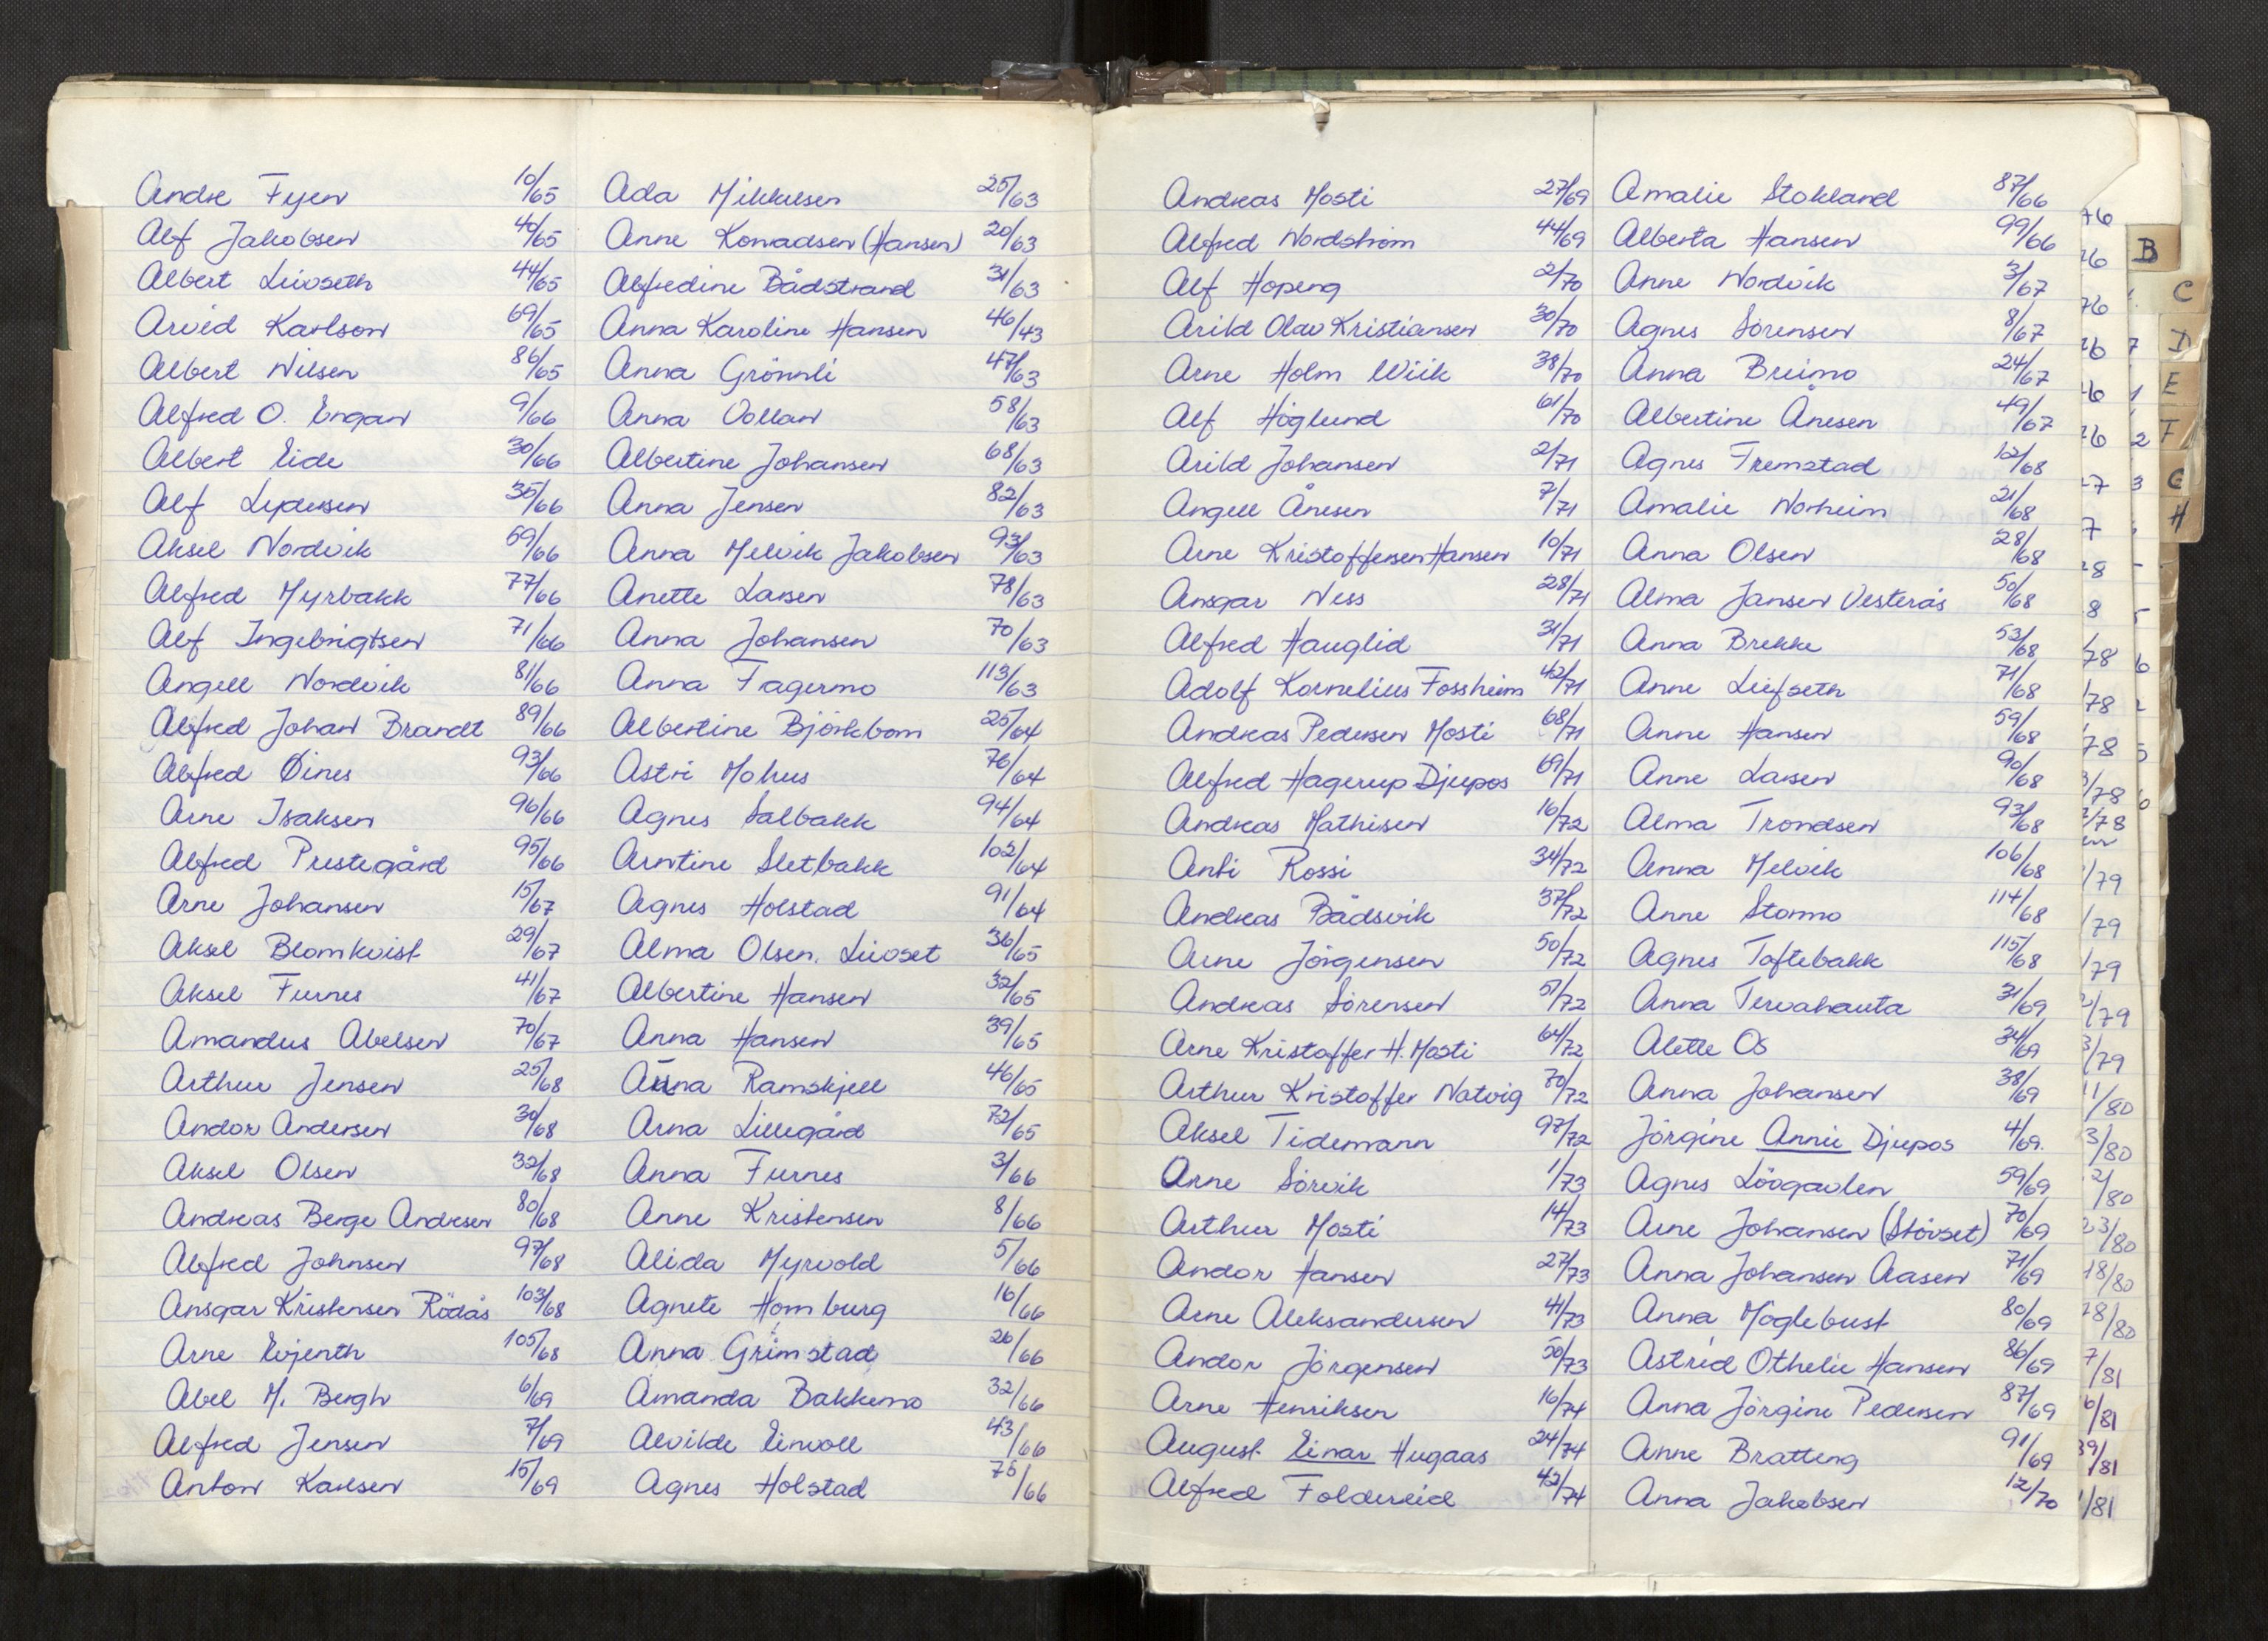 Andre Fyen 10/65
Alf Jakobsen 40/65
Albert Livoseth 44/65
Arvid Karlson 69/65
Albert Nilsen 86/65
Alfred O. Engan 9/66
Albert Eide 30/66
Alf Lydersen 35/66
Aksel Nordvik 59/66
Alfred Myrbakk 77/66
Alf Ingebrigtsen 71/66
Angell Nordvik 81/66
Alfred Johan Brandt 89/66
Alfred Øines 93/66
Arne Isaksen 96/66
Alfred Prestegård 95/66
Arne Johansen 15/67
Aksel Blomkvist 29/67
Aksel Furnes 41/67
Amandus Abelsen 70/67
Arthur Jensen 25/68
Andor Andersen 30/68
Aksel Olsen 32/68
Andreas Berge Andresen 80/68
Alfred Johnsen 97/68
Ansgar Kristensen Rödås 103/68
Arne Evjenth 105/68
Abel M. Bergh 6/69
Alfred Jensen 7/69
Anton Karlsen 15/69
Ada Mikkelsen 25/63
Anne Konradsen (Hansen) 20/63
Alfredine Bådstrand 31/63
Anna Karoline Hansen 46/43
Anna Grönnli 47/63
Anna Vollan 58/63
Albertine Johansen 68/63
Anna Jensen 82/63
Anna Melvik Jakobsen 93/63
Anette Larsen 78/63
Anna Johansen 70/63
Anna Fagermo 113/63
Albertine Björkbom 25/64
Astri Mohus 76/64
Agnes Salbakk 94/64
Arntine Sletbakk 102/64
Agnes Holstad 91/64
Alma Olsen. Livoset 36/65
Albertine Hansen 32/65
Anna Hansen 39/65
Anna Ramskjell 46/65
Arna Lillegård 72/65
Anna Furnes 3/66
Anne Kristensen 8/66
Alida Myrvold 5/66
Agnete Homburg 16/66
Anna Grimstad 26/66
Amanda Bakkemo 32/66
Alvilde Einvoll 43/66
Agnes Holstad 75/66
Andreas Mosti 27/69
Alfred Nordstrøm 44/69
Alf Hopeng 2/70
Arild Olav Kristiansen 30/70
Arne Holm Wiik 38/70
Alf Höglund 61/70
Arild Johansen 2/71
Angell Ånesen 7/71
Arne Kristoffersen Hansen 10/71
Ansgar Ness 28/71
Alfred Hauglid 31/71
Adolf Kornelius Fossheim 42/71
Andreas Pedersen Mosti 68/71
Alfred Hagerup Djupos 69/71
Andreas Mathisen 16/72
Anti Rossi 34/72
Andreas Bådsvik 37/72
Arne Jörgensen 50/72
Andreas Sörensen 51/72
Arne Kristoffer H. Mosti 64/72
Arthur Kristoffer Natvig 70/72
Aksel Tidemann 97/72
Arne Sörvik 1/73
Arthur Mosti 14/73
Andor Hansen 27/73
Arne Aleksandersen 41/73
Andor Jörgensen 50/73
Arne Henriksen 16/74
August Einar Hugaas 24/74
Alfred Foldereid 42/74
Amalie Stokland 87/66
Alberta Hansen 99/66
Anne Nordvik 3/67
Agnes Sörensen 8/67
Anna Breimo 24/67
Albertine Ånesen 49/67
Agnes Fremstad 12/68
Amalie Norheim 21/68
Anna Olsen 28/68
Alma Jansen Vesterås 50/68
Anna Brekke 53/68
Anne Liefseth 71/68
Anne Hansen 59/68
Anne Larsen 90/68
Alma Trondsen 93/68
Anna Melvik 106/68
Anne Stormo 114/68
Agnes Toftebakk 115/68
Anna Tervahauta 31/69
Alette Os 34/69
Anna Johansen 38/69
Jörgine Annie Djupos 4/69.
Agnes Lövgavlen 59/69
Arne Johansen (Störset) 70/69
Anna Johansen Aasen 71/69
Anna Moglebust 80/69
Astrid Othelie Hansen 86/69
Anna Jörgine Pedersen 87/69
Anne Bratteng 91/69
Anna Jakobsen 12/70
B
C
D
E
F
G
H